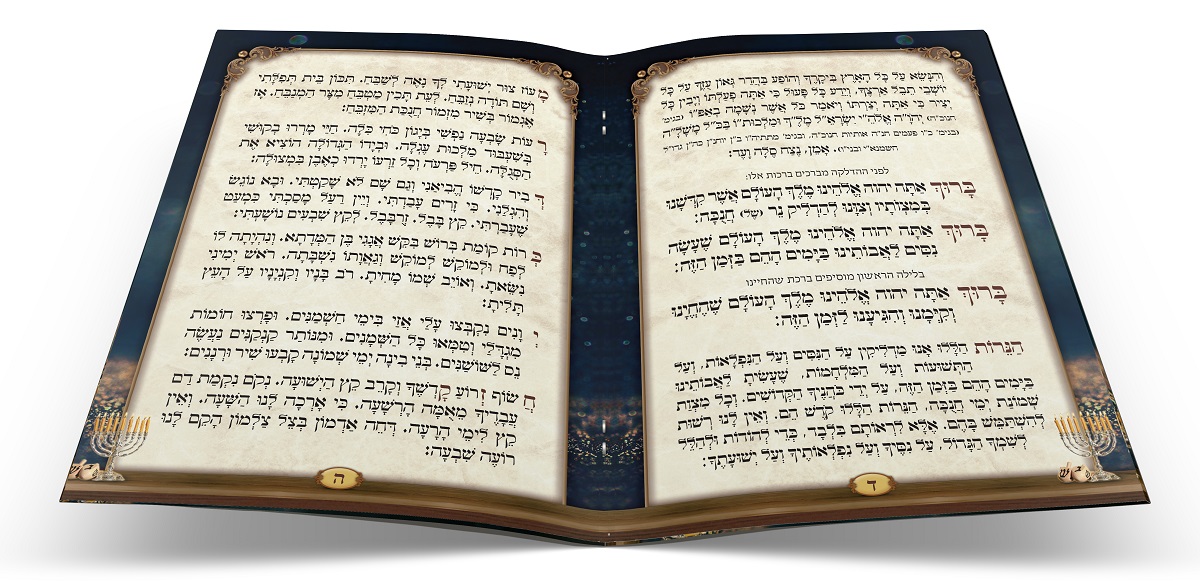 וְהִנָּשֵׂא עַל כָּל הָאָרֶץ בִּיקָרֶךָ וְהוֹפַע בַּהֲדַר גְּאוֹן עֻזֶּךָ עַל כָּל
יוֹשְׁבֵי תֵבֵל אַרְצֶךָ. וְיֵדַע כָּל פָּעוּל כִּי אַתָּה פְעַלְתּוֹ וְיָבִין כָּל
יְצִיר כִּי אַתָּה יְצַרְתּוֹ וְיֹאמַר כֹּל אֲשֶׁר נְשָׁמָה בְּאַפּ"וֹ (בגימ'
חנוכ"ה) יְהֹוָ"ה אֱלֹהֵ"י יִשְׂרָאֵ"ל מֶלֶ"ךְ וּמַלְכוּת"וֹ בַּכֹּ"ל מָשָׁלָ"ה
(בגימ' כ"ו פעמים חנ"ה אותיות חנוכ"ה, ובגימ' מתתיה"ו ב"ן יוחנ"ן כה"ן גדו"ל
חשמנא"י ובני"ו). אָמֵן, נֶצַח סֶלָה וָעֶד:
לפני ההדלקה מברכים ברכות אלו:
בָּרוּךְ אַתָּה יהוה אֱלֹהֵינוּ מֶלֶךְ הָעוֹלָם אֲשֶׁר קִדְּשָׁנוּ
בְּמִצְוֹתָיו וְצִוָּנוּ לְהַדְלִיק נֵר (שֶׁל) חֲנֻכָּה:
בָּרוּךְ אַתָּה יהוה אֱלֹהֵינוּ מֶלֶךְ הָעוֹלָם שֶׁעָשָׂה
נִסִּים לַאֲבוֹתֵינוּ בַּיָּמִים הָהֵם בַּזְּמַן הַזֶּה:
בלילה הראשון מוסיפים ברכת שהחיינו
בָּרוּךְ אַתָּה יהוה אֱלֹהֵינוּ מֶלֶךְ הָעוֹלָם שֶׁהֶחֱיָנוּ
וְקִיְּמָנוּ וְהִגִּיעָנוּ לַזְּמַן הַזֶּה:
הַנֵּרוֹת הַלָּלוּ אָנוּ מַדְלִיקִין עַל הַנִּסִּים וְעַל הַנִּפְלָאוֹת, וְעַל
הַתְּשׁוּעוֹת וְעַל הַמִּלְחָמוֹת, שֶׁעָשִׂיתָ לַאֲבוֹתֵינוּ
בַּיָּמִים הָהֵם בַּזְּמַן הַזֶּה, עַל יְדֵי כֹּהֲנֶיךָ הַקְּדוֹשִׁים. וְכָל מִצְוַת
שְׁמוֹנַת יְמֵי חֲנֻכָּה, הַנֵּרוֹת הַלָּלוּ קֹדֶשׁ הֵם. וְאֵין לָנוּ רְשׁוּת
לְהִשְׁתַּמֵּשׁ בָּהֶם, אֶלָּא לִרְאוֹתָם בִּלְבַד, כְּדֵי לְהוֹדוֹת וּלְהַלֵּל
לְשִׁמְךָ הַגָּדוֹל, עַל נִסֶּיךָ וְעַל נִפְלְאוֹתֶיךָ וְעַל יְשׁוּעָתֶךָ:
ד
מָעוֹז צוּר יְשׁוּעָתִי לְךָ נָאֶה לְשַׁבֵּחַ. תִּכּוֹן בֵּית תְּפִלָּתִי
וְשָׁם תּוֹדָה נְזַבֵּחַ. לְעֵת תָּכִין מַטְבֵּחַ מִצָּר הַמְנַבֵּחַ. אָז
אֶגְמוֹר בְּשִׁיר מִזְמוֹר חֲנֻכַּת הַמִּזְבֵּחַ:
רָעוֹת שָׂבְעָה נַפְשִׁי בְּיָגוֹן כֹּחִי כָּלָה. חַיַּי מָרְרוּ בְּקוּשִׁי
בְּשִׁעְבּוּד מַלְכוּת עֶגְלָה. וּבְיָדוֹ הַגְּדוֹלָה הוֹצִיא אֶת
הַסְּגֻלָּה. חֵיל פַּרְעֹה וְכָל זַרְעוֹ יָרְדוּ כְאֶבֶן בִּמְצוּלָה:
דְּבִיר קָדְשׁוֹ הֱבִיאַנִי וְגַם שָׁם לֹא שָׁקַטְתִּי. וּבָא נוֹגֵשׂ
וְהִגְלַנִי. כִּי זָרִים עָבַדְתִּי. וְיֵין רַעַל מָסַכְתִּי כִּמְעַט
שֶׁעָבַרְתִּי. קֵץ בָּבֶל. זְרֻבָּבֶל. לְקֵץ שִׁבְעִים נוֹשַׁעְתִּי:
כְּרוֹת קוֹמַת בְּרוֹשׁ בִּקֵּשׁ אֲגָגִי בֶּן הַמְּדָתָא. וְנִהְיָתָה לוֹ
לְפַח וּלְמוֹקֵשׁ לְמוֹקֵשׁ וְגַאֲוָתוֹ נִשְׁבָּתָה. רֹאשׁ יְמִינִי
נִשֵּׂאתָ. וְאוֹיֵב שְׁמוֹ מָחִיתָ. רֹב בָּנָיו וְקִנְיָנָיו עַל הָעֵץ
תָּלִיתָ:
יְוָנִים נִקְבְּצוּ עָלַי אֲזַי בִּימֵי חַשְׁמַנִּים. וּפָרְצוּ חוֹמוֹת
מִגְדָּלַי וְטִמְּאוּ כָּל הַשְּׁמָנִים. וּמִנּוֹתַר קַנְקַנִּים נַעֲשָׂה
נֵס לַשּׁוֹשַׁנִּים. בְּנֵי בִינָה יְמֵי שְׁמוֹנָה קָבְעוּ שִׁיר וּרְנָנִים:
חֲשׂוֹף זְרוֹעַ קָדְשֶׁךָ וְקָרֵב קֵץ הַיְשׁוּעָה. נְקֹם נִקְמַת דַּם
עֲבָדֶיךָ מֵאֻמָּה הָרְשָׁעָה. כִּי אָרְכָה לָנוּ הַשָּׁעָה. וְאֵין
קֵץ לִימֵי הָרָעָה. דְּחֵה אַדְמוֹן בְּצֵל צַלְמוֹן הָקֵם לָנוּ
רוֹעֶה שִׁבְעָה:
ה